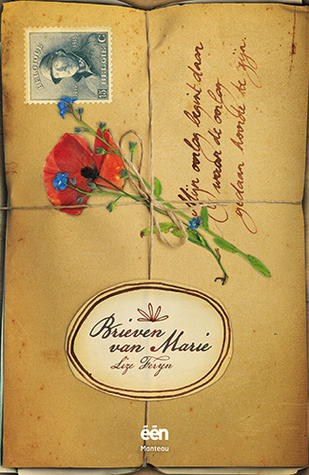 BELGIQUE
15 C
BELGIË
Mijn oorlog begint daar
waar de oorlog
gedaan hoorde te zijn.
Brieven
van Marie
Lize Feryn
één
Manteau